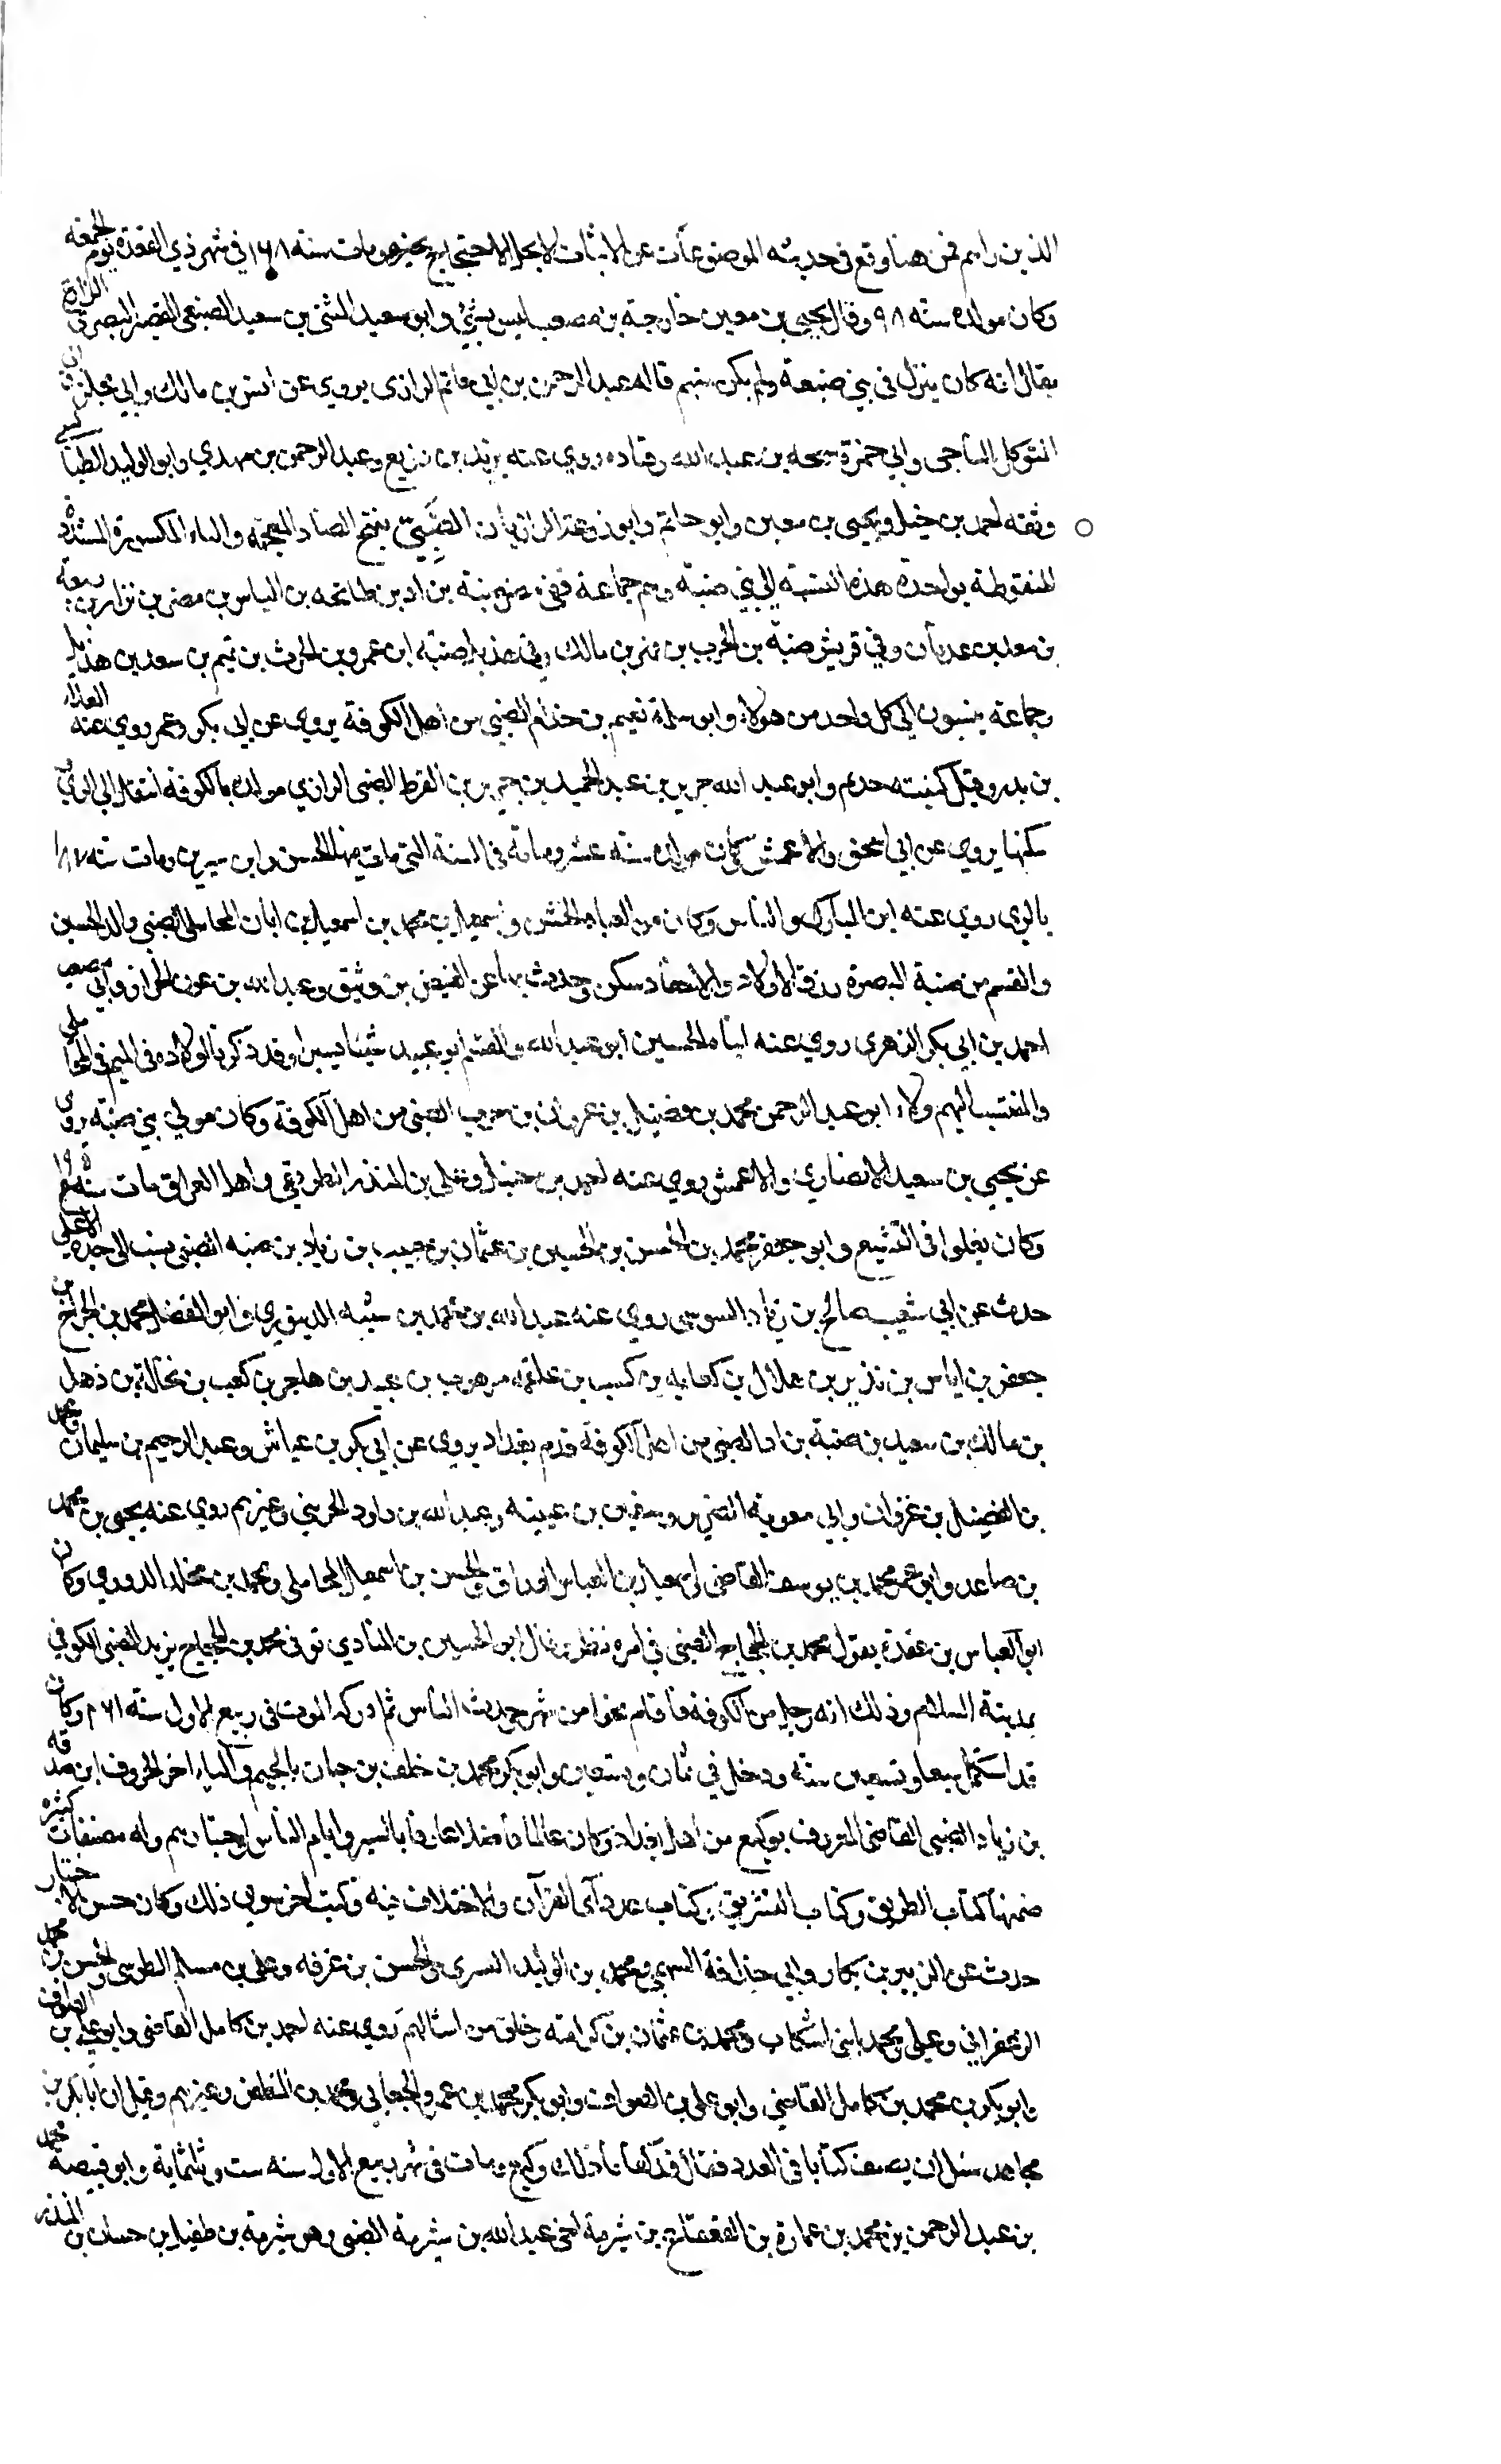 الذين راهم فمن هنا وقع في حديثه الموضوعات عن الاثبات لا يحل الاحتجاج بخبره ومات سنه ١٦٨ في شهر ذي القعدة يوم الجمعه
وكان مولده سنه ٩٨ وقال يحيى بن معين خارجة بن مصعب ليس بشئ وابو سعيد المثنى بن سعيد الضبعي القصير البصري الذراع
يقال انه كان ينزل في بني ضبيعة ولم يكن منهم قاله عبد الرحمن بن ابي حاتم الرازي يروي عن انس بن مالك وابي مجلز وابي
المتوكل الناجي وابي حمزة سحه بن عبد الله وقتاده روي عنه يزيد بن زريع وعبد الرحمن بن مهدي وابو الوليد الطيالسي
وثقه احمد بن حنبل ويحيى بن معين وابو حاتم وابو زرعة الرازيان الضَّبِّيّ بفتح الضاد المعجمه والباء المكسورة المشدده
المنقوطة بواحدة هذه النسبة الى بني ضبة وهم جماعة ففي مضر ضبة بن اد بن طابخه بن الياس بن مضر بن نزار بن ربيعة
بن معد بن عدنان وفي قريش ضبة بن الحرب بن فهر بن مالك وفي هذيل ضبة ابن عمرو بن الحرث بن تميم بن سعد بن هذيل
وجماعة ينسبون الى كل واحد من هولاء وابو سلمة نعيم بن حذلم الضبي من اهل الكوفة يروي عن ابي بكر وعمر روي عنه العلاء
بن بدر وقيل كنيته حذلم وابو عبد الله جرير بن عبد الحميد بن جرير بن القرط الضبي الرازي مولده بالكوفه انتقل الى الري
سكنها يروي عن ابي اسحق والاعمش كان مولده سنه عشر وماة في السنة التي مات فيها الحسن وابن سيرين ومات سنه ١٨٧
بالري روي عنه ابن المبارك والناس وكان من العباد الخشن واسمعيل بن محمد بن اسمعيل بن ابان المحاملي الضبي والد الحسين
والقسم من ضبة البصرة رزق الاولاد والاحفاد سكن وحدث بها عن الفيض بن وثيق وعبد الله بن عون الخراز وابي مصعب
احمد بن ابي بكر الزهري روي عنه ابناه الحسين ابو عبد الله والقسم ابو عبيد شيئا يسيرا وقد ذكرنا اولاده في الميم في المحاملي
والمنتسب اليهم ولاء ابو عبد الرحمن محمد بن فضيل بن غزوان بن جرير الضبي من اهل الكوفة وكان مولي بني ضبة يروي
عن يحيى بن سعيد الانصاري والاعمش روي عنه احمد بن حنبل وعلي بن المنذر الطريقي واهل العراق مات سنه ١٩٥
وكان يغلوا في التشيع وابو جعفر محمد بن الحسن بن الحسين بن عثمان بن حبيب بن زياد بن ضبه الضبي ينسب الى جده الاعلى
حدث عن ابي شعيب صالح بن زياد السوسي روي عنه عبد الله بن محمد بن شيبه الدينوري وابو الفضل محمد بن الحجاج بن
جعفر بن اياس بن نذير بن هلال بن كعب بن علقمه بن موهوب بن عبيد بن هاجر بن كعب بن بجالة بن ذهل
بن مالك بن سعيد بن ضبة بن اد الضبي من اهل الكوفة قدم بغداد يروي عن ابي بكر بن عياش وعبد الرحيم بن سليمان ومحمد
بن الفضيل بن غزوان وابي معوية الضرير وسفين بن عيينه وعبد الله بن داود الحربي وغيرهم روي عنه يحيى بن محمد
بن صاعد وابو عمر محمد بن يوسف القاضي اسمعيل بن العباس الوراق والحسن بن اسمعيل المحاملي ومحمد بن مخلد الدوري وكان
ابو العباس بن عقدة يقول محمد بن الحجاج الضبي في امره نظر وقال ابو الحسين بن المنادي توفي محمد بن الحجاج بن يزيد الضبي الكوفي
بمدينة السلام وذلك انه رحل من الكوفه فاقام نحوا من شهر حديث الناس ثم ادركه الموت في ربيع الاول سنة ٢٦١ وكان
قد استكمل سبعا وتسعين سنه ودخل في ثمان وتسعين وابو بكر محمد بن خلف بن حيان بالجيم والياء اخر الحروف ابن صدقه
بن زياد الضبي القاضي المعروف بوكيع من اهل بغداد وكان عالما فاضلا عارفا بالسير وايام الناس واخبارهم وله مصنفات كثيره
ضمنها كتاب الطريق وكتاب الشريف وكتاب عدد آي القرآن والاختلاف فيه وكتب اخر سوى ذلك وكان حسن الاخبار
حدث عن الزبير بن بكار وابي حذافة السهمي ومحمد بن الوليد البسري والحسن بن عرفه وعلي بن مسلم الطوسي والحسن بن محمد
الزعفراني وعلي ومحمد ابني اشكاب ومحمد بن عثمان بن كرامته وخلق من امثالهم روي عنه احمد بن كامل القاضي وابو علي بن الصواف
وابو بكر بن محمد بن كامل القاضي وابو علي بن الصواف وابو بكر محمد بن عمر الجعابي ومحمد بن المظفر وغيرهم وقيل ان ابا بكر بن
مجاهد سئل ان يصنف كتابا في العدد فقال قد كفانا ذلك وكيع ومات في شهر ربيع الاول سنه ست وثلثماية وابو قبيصة محمد
بن عبد الرحمن بن محمد بن عمارة بن القعقاع بن شبرمة اخي عبد الله بن شبرمة الضبي وهو شبرمة بن طفيل بن حسان بن المنذر